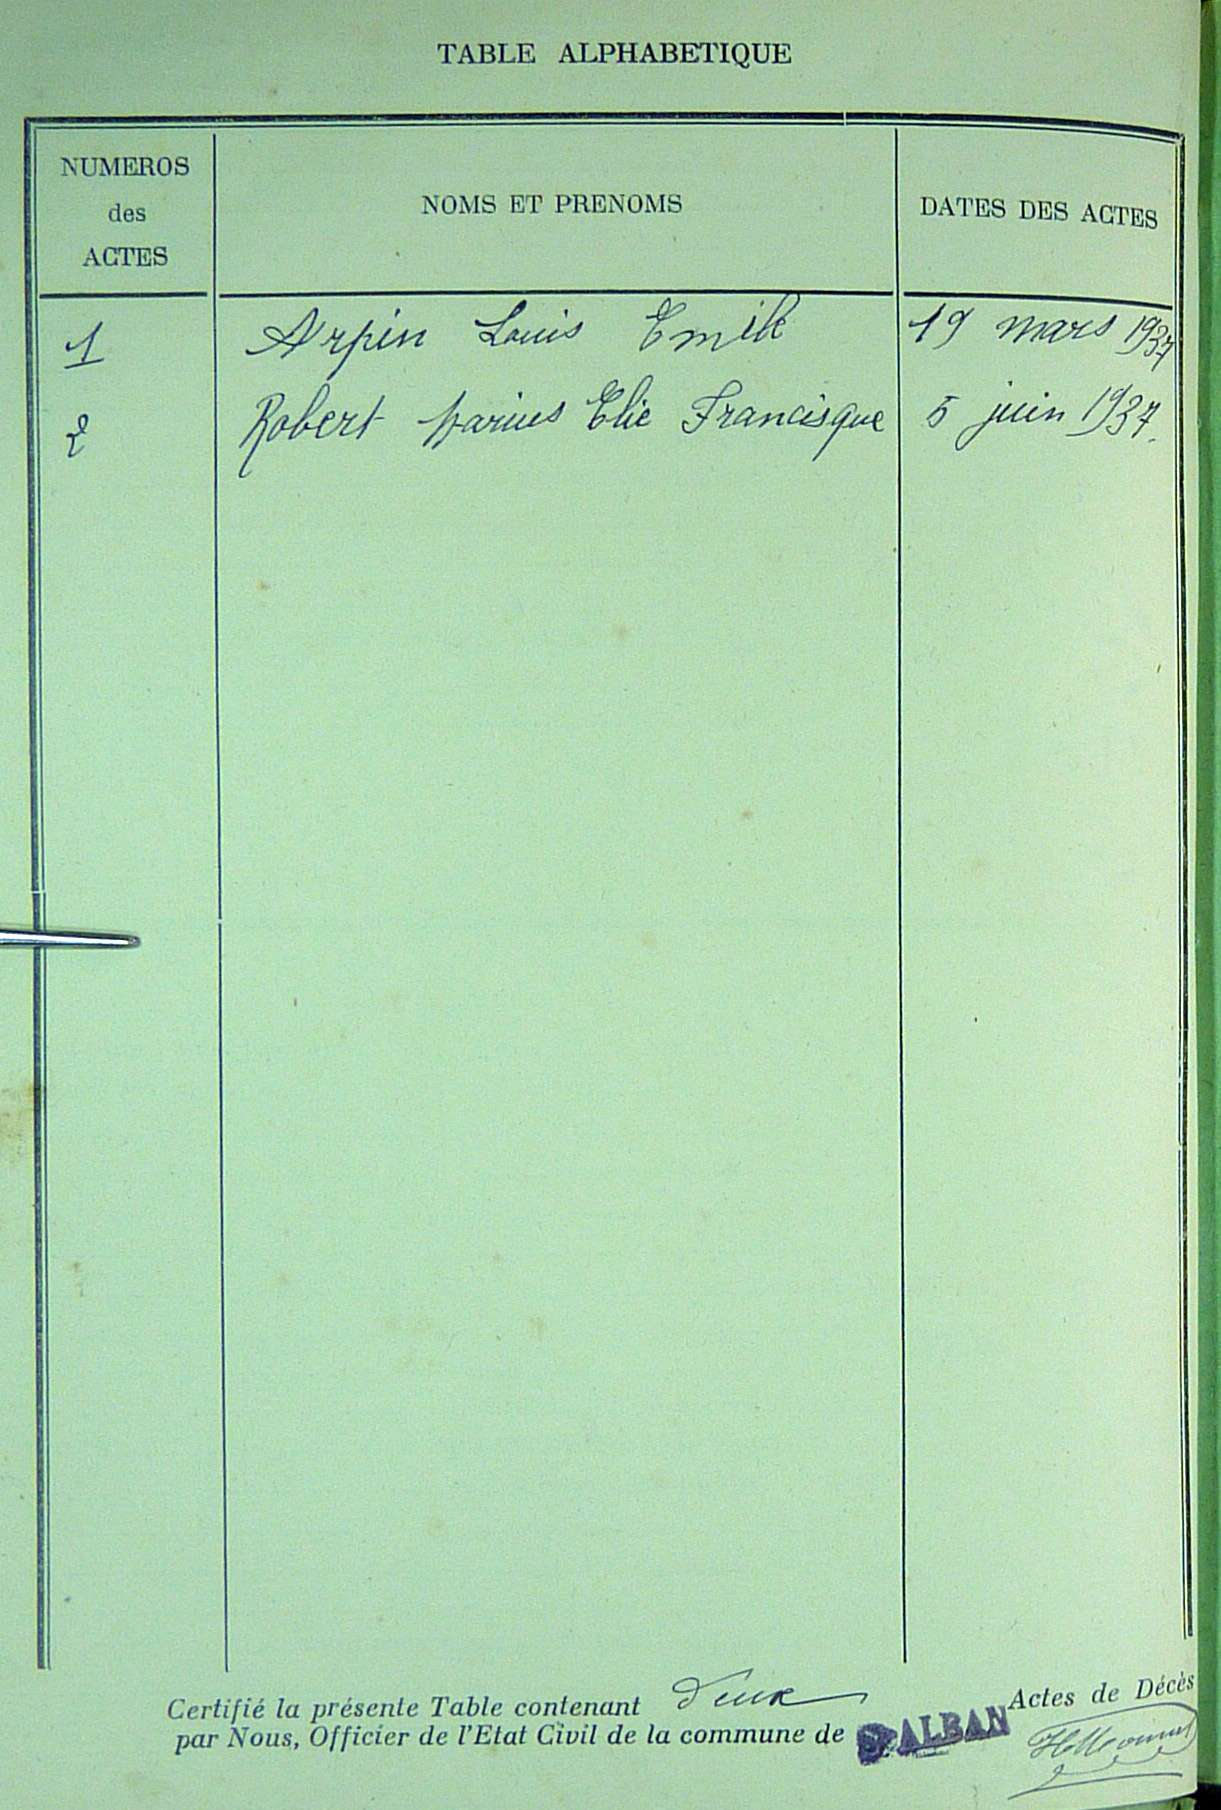 TABLE ALPHABETIQUE
NUMEROS
des
ACTES
NOMS ET PRENOMS
DATES DES ACTES
1 Arpin Louis Emile 19 mars 1937
2 Robert Marius Elie Francisque 5 juin 1937.
Certifié la présente Table contenant deux Actes de Décès
par Nous, Officier de l'Etat Civil de la commune de St ALBAN